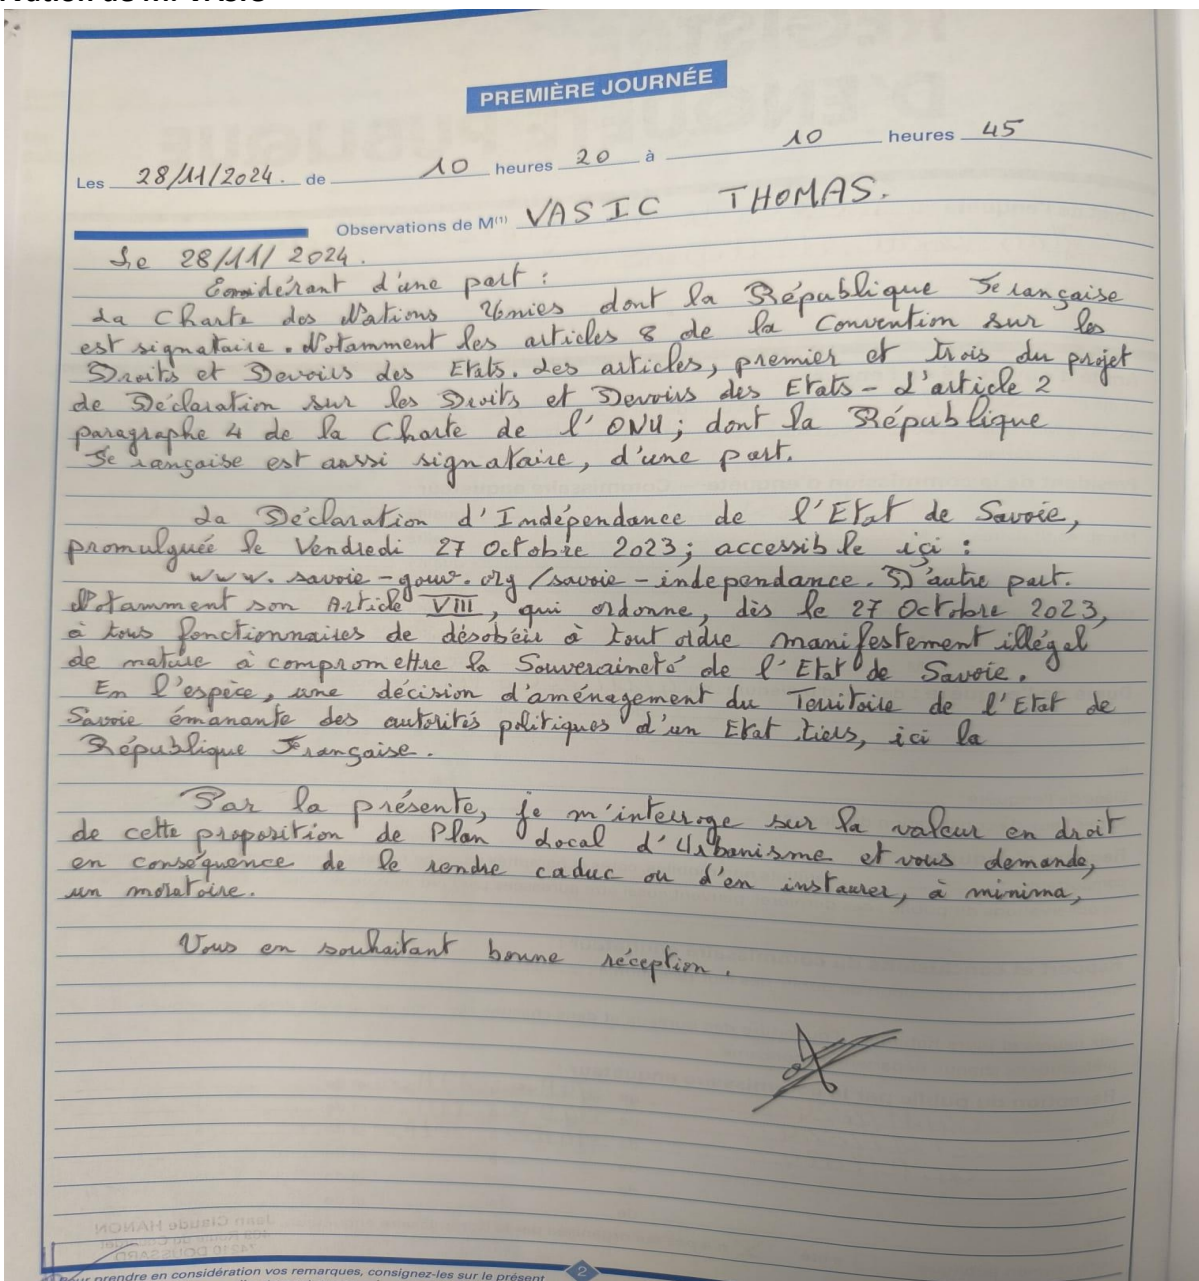 PREMIÈRE JOURNÉE
Les 28/11/2024. de 10 heures 20 à 10 heures 45
Observations de M(1) VASIC THOMAS.
Le 28/11/2024.
Considérant d'une part :
La Charte des Nations Unies dont la République Française
est signataire. Notamment les articles 8 de la Convention sur les
Droits et Devoirs des Etats. Les articles, premier et trois du projet
de Déclaration sur les Droits et Devoirs des Etats - L'article 2
paragraphe 4 de la Charte de l'ONU; dont la République
Française est aussi signataire, d'une part.
La Déclaration d'Indépendance de l'Etat de Savoie,
promulguée le Vendredi 27 Octobre 2023; accessible içi :
www.savoie-gouv.org/savoie-independance. D'autre part.
Notamment son Article VIII, qui ordonne, dès le 27 Octobre 2023,
à tous fonctionnaires de désobéir à tout ordre manifestement illégal
de nature à compromettre la Souveraineté de l'Etat de Savoie.
En l'espèce, une décision d'aménagement du Territoire de l'Etat de
Savoie émanante des autorités politiques d'un Etat tiers, ici la
République Française.
Par la présente, je m'interroge sur la valeur en droit
de cette proposition de Plan Local d'Urbanisme et vous demande,
en conséquence de le rendre caduc ou d'en instaurer, à minima,
un moratoire.
Vous en souhaitant bonne réception.
Jean Claude HANON
74210 DOUSSARD
prendre en considération vos remarques, consignez-les sur le présent
2